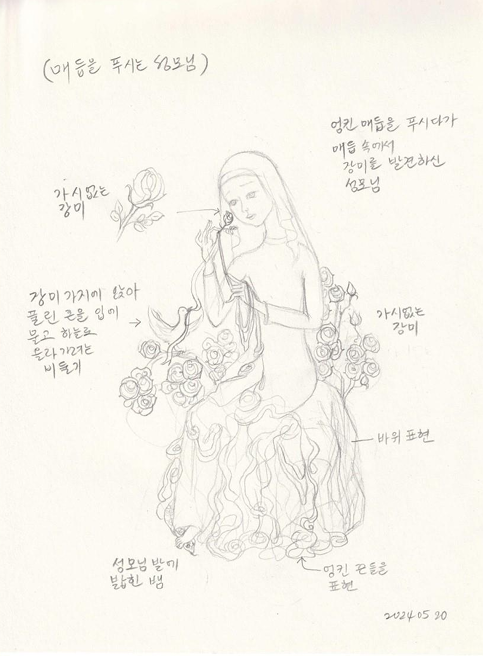 (매듭을 푸시는 성모님)
엉킨 매듭을 푸시다가
매듭 속에서
장미를 발견하신
성모님
가시없는
장미
장미 가지에 앉아
풀린 끈을 입에
물고 하늘로
올라가려는
비둘기
가시없는
장미
바위 표현
성모님 발에
밟힌 뱀
엉킨 끈들을
표현
2024 05 30